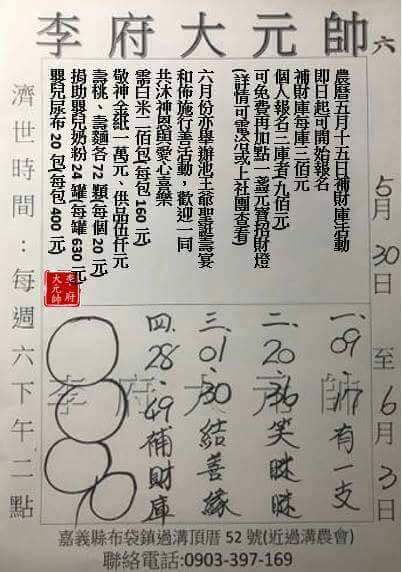 李府大元帥 六
5月30日至6月3日
農曆五月十五日補財庫活動
即日起可開始報名
補財庫每庫三佰元
個人報名三庫者九佰元
可免費再加點一盞元寶招財燈
(詳情可電洽或上社團查看)
六月份亦舉辦池王爺聖誕壽宴
和佈施行善活動，歡迎一同
共沐神恩與愛心喜樂
需白米二佰包(每包160元)
敬神金紙一萬元、供品伍仟元
壽桃、壽麵各72顆(每個20元)
捐助嬰兒奶粉24罐(每罐630元)
嬰兒尿布20包(每包400元)
李府
大元帥
濟世時間：每週六下午二點
李府大元帥
一、09、17有一支
二、20、36笑眯眯
三、01、30結善緣
四、28、49補財庫
嘉義縣布袋鎮過溝頂厝52號(近過溝農會)
聯絡電話:0903-397-169